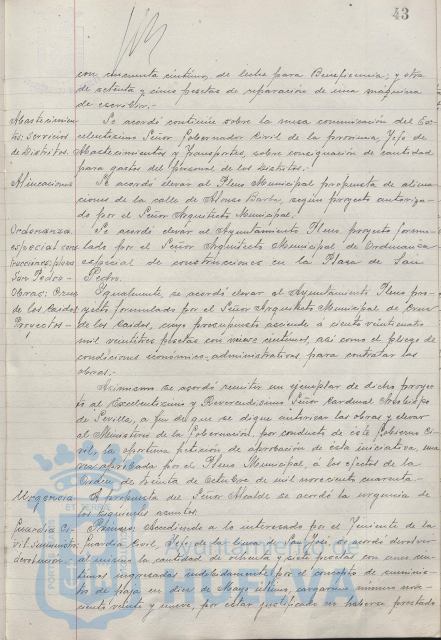 43
con cincuenta céntimos, de leche para Beneficencia; y otra
de setenta y cinco pesetas de reparación de una máquina
de escribir.-
Abastecimien-
tos: Servicios
de Distritos.-
Se acordó continúe sobre la mesa comunicación del Ex-
celentísimo Señor Gobernador Civil de la provincia, Jefe de
Abastecimientos y Transportes, sobre consignación de cantidad
para gastos del personal de los Distritos.-
Alineaciones
Se acordó elevar al Pleno Municipal propuesta de alinea-
ciones de la calle de Alonso Barba, según proyecto autoriza-
do por el Señor Arquitecto Municipal.-
Ordenanza
especial cons-
trucciones plaza
San Pedro.-
Se acordó elevar al Ayuntamiento Pleno proyecto formu-
lado por el Señor Arquitecto Municipal de Ordenanza
especial de construcciones en la Plaza de San
Pedro.-
Obras: Cruz
de los Caídos
Proyectos.-
Igualmente, se acordó elevar al Ayuntamiento Pleno pro-
yecto formulado por el Señor Arquitecto Municipal de Cruz
de los Caídos, cuyo presupuesto asciende a ciento veinticuatro
mil veintitres pesetas con nueve céntimos, así como el pliego de
condiciones económico-administrativas para contratar las
obras.-
Asimismo se acordó remitir un ejemplar de dicho proyec-
to al Excelentísimo y Reverendísimo Señor Cardenal Arzobispo
de Sevilla, a fin de que se digne autorizar las obras y elevar
al Ministerio de la Gobernación, por conducto de este Gobierno Ci-
vil, la oportuna petición de aprobación de ésta iniciativa, una
vez aprobada por el Pleno Municipal, a los efectos de la
Orden de treinta de Octubre de mil novecientos cuarenta.-
Urgencia
A propuesta del Señor Alcalde se acordó la urgencia de
los siguientes asuntos.
Guardia Ci-
vil: Suministros
devolución.-
Primero: Accediendo a lo interesado por el Teniente de la
Guardia Civil, Jefe de la Línea de San José, se acordó devolver
al mismo la cantidad de ochenta y siete pesetas con once cén-
timos ingresadas indebidamente por el concepto de suminis-
tros de paja en diez de Mayo último, cargareme número nove-
ciento veinte y nueve, por estar justificado no haberse prestado
Ayuntamiento de